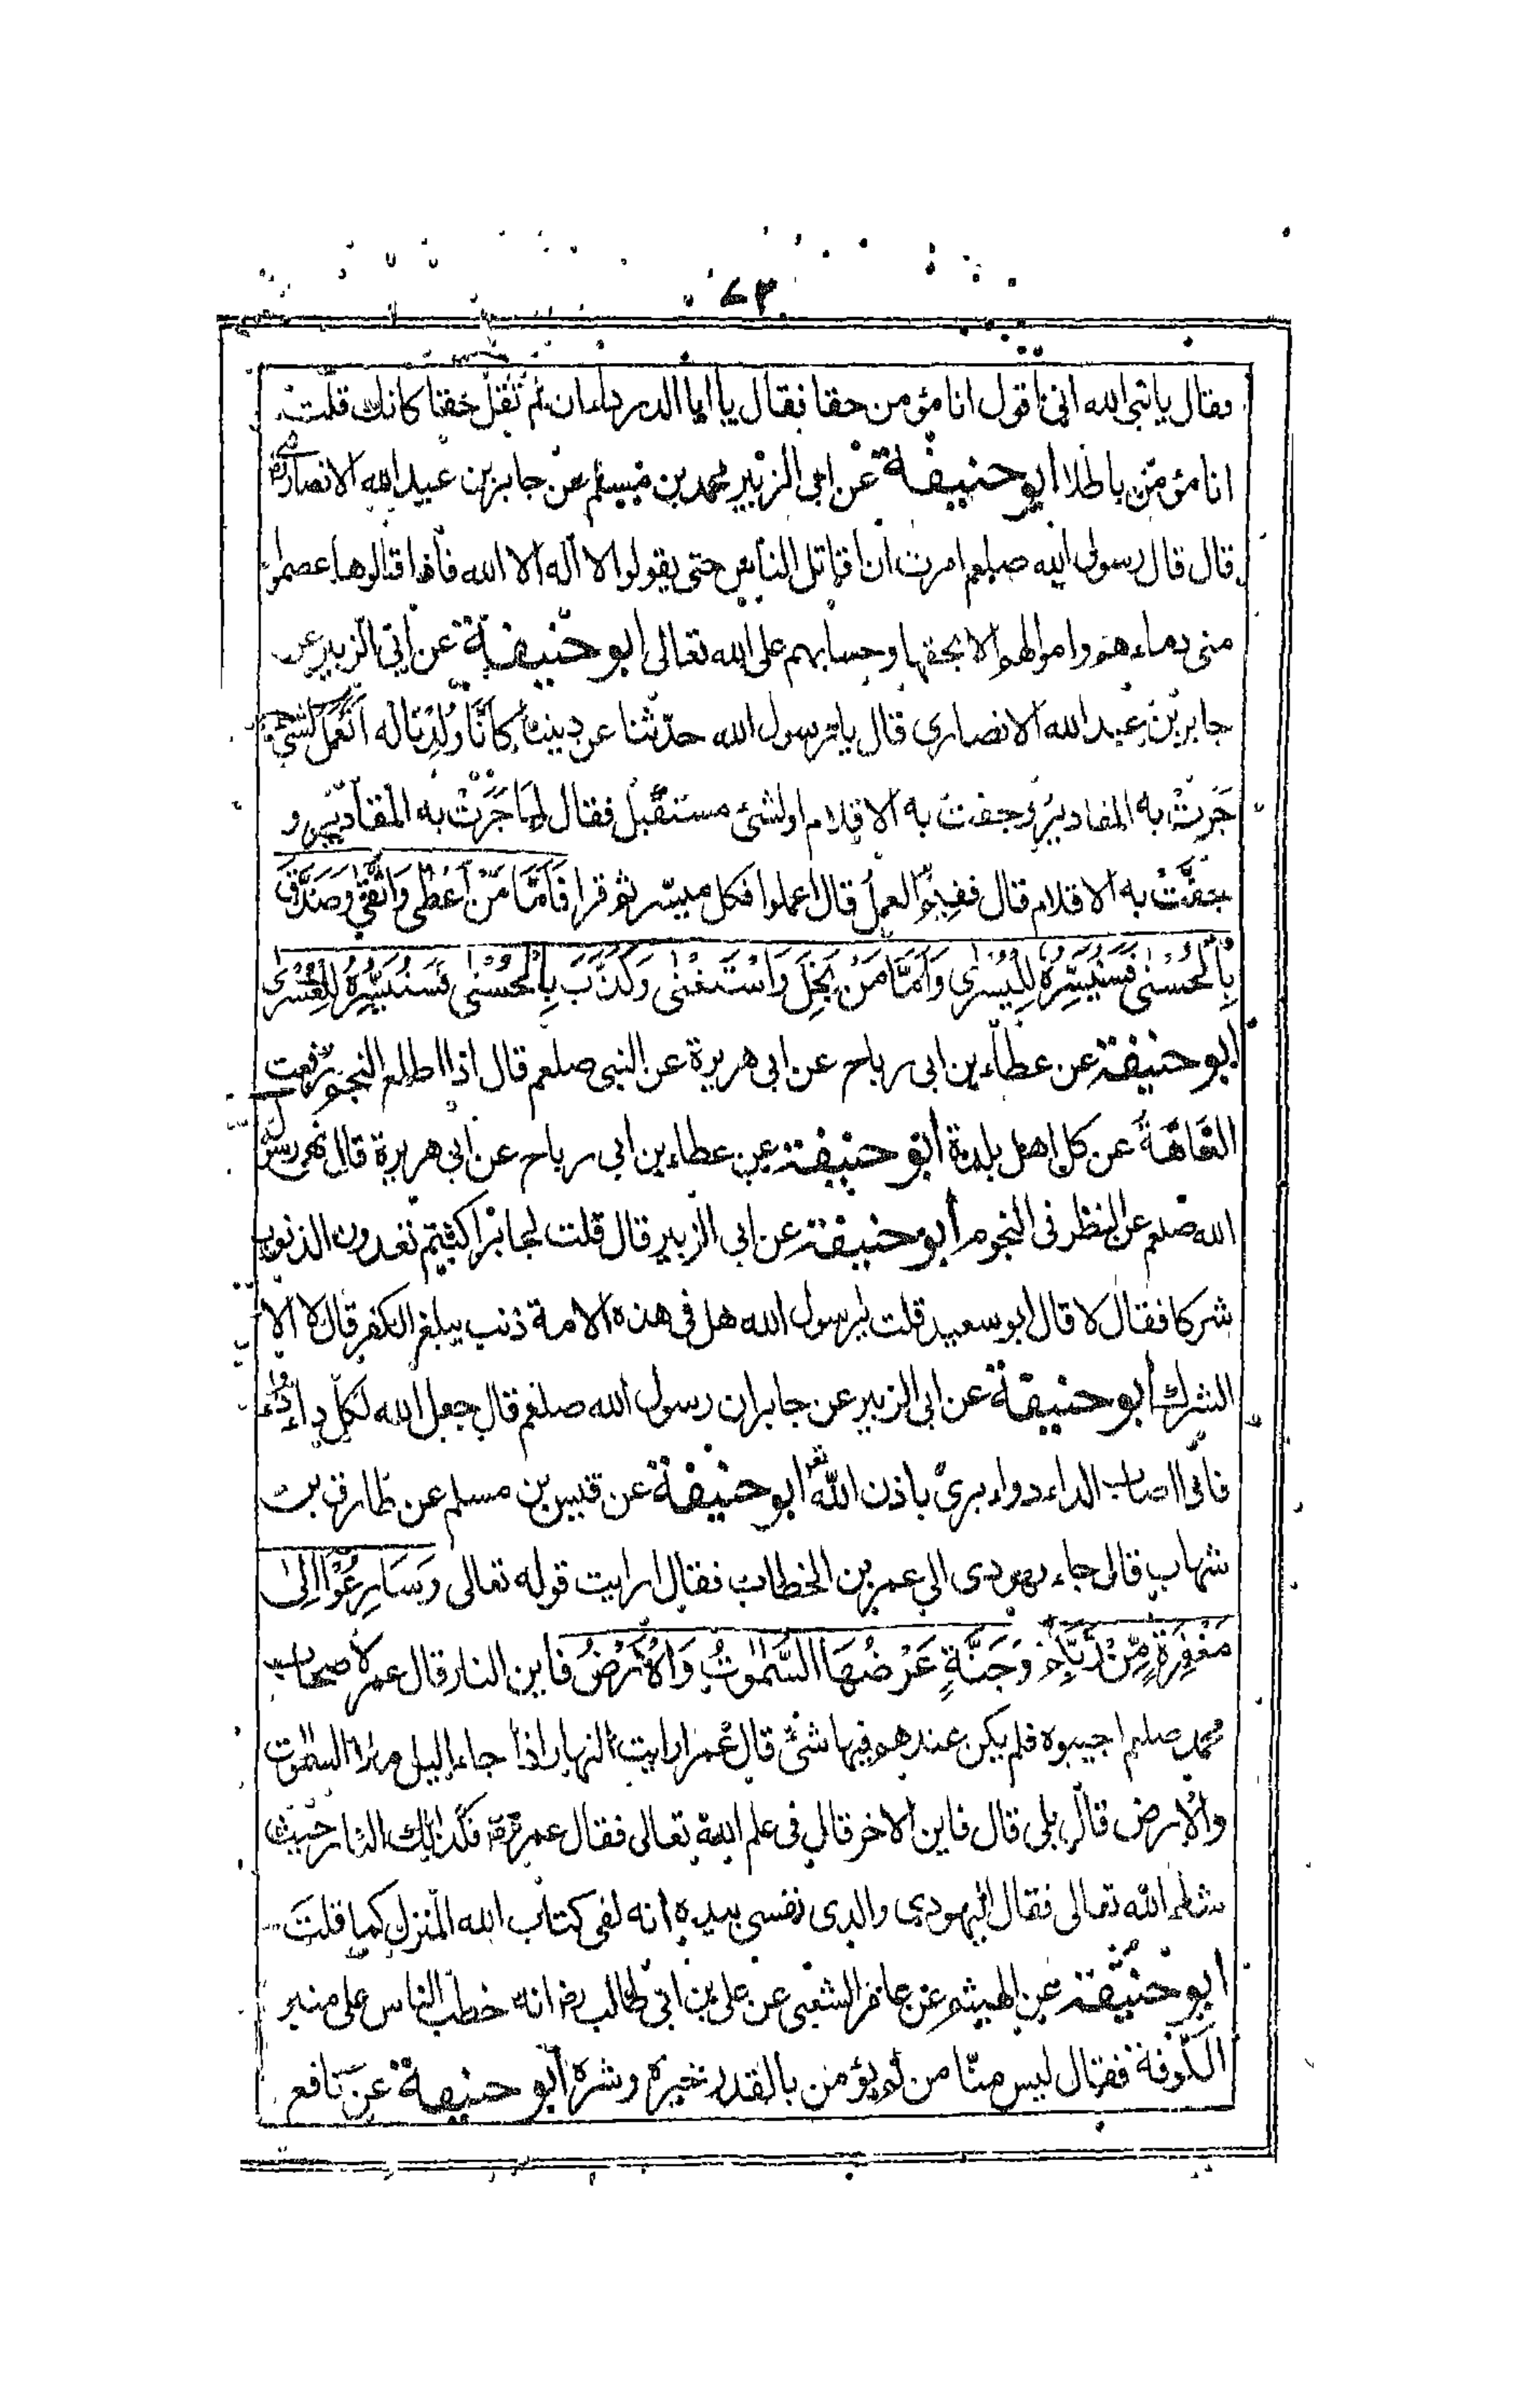 فقال يا نبي الله انى اقول انا مؤمن حقا فقال يا ابا الدرداء ان لم تقل حقا كانك قلت
انا مؤمن باطلا ابو حنيفة عن ابى الزبير محمد بن مسلم عن جابر بن عبد الله الانصارى رض
قال قال رسول الله صلعم امرت ان اقاتل الناس حتى يقولوا لا اله الا الله فاذا قالوها عصموا
منى دماءهم واموالهم الا بحقها وحسابهم على الله تعالى ابو حنيفة عن ابى الزبير عن
جابر بن عبد الله الانصارى قال يا رسول الله حدّثنا عن ديننا كانّا وُلِدْنا له اَنَعْمَلُ لشئ
جَرَتْ به المقادير وجفت به الاقلام او لشئ مستقبل فقال لما جَرَتْ به المقادير و
جفّتْ به الاقلام قال ففيم العمل قال اعملوا فكل ميسر ثم قرا فَاَمَّا مَنْ اَعْطٰى وَاتَّقٰى وَصَدَّقَ
بِالْحُسْنٰى فَسَنُيَسِّرُهٗ لِلْيُسْرٰى وَاَمَّا مَنْ بَخِلَ وَاسْتَغْنٰى وَكَذَّبَ بِالْحُسْنٰى فَسَنُيَسِّرُهٗ لِلْعُسْرٰى
ابو حنيفة عن عطاء بن ابى رباح عن ابى هريرة عن النبى صلعم قال اذا اطلع النجم رفعت
العَاهَةُ عن كل اهل بلدة ابو حنيفة عن عطاء بن ابى رباح عن ابى هريرة قال نهى رسول
الله صلعم عن النظر فى النجوم ابو حنيفة عن ابى الزبير قال قلت لجابر اكنتم تعدون الذنوب
شركا فقال لا قال ابو سعيد قلت يرسول الله هل فى هذه الامة ذنب يبلغ الكفر قال لا الا
الشرك ابو حنيفة عن ابى الزبير عن جابر ان رسول الله صلعم قال جعل الله لكل داء دواء
فاذا اصاب الداء دواء برئ باذن الله تعر ابو حنيفة عن قيس بن مسلم عن طارق بن
شهاب قال جاء يهودى الى عمر بن الخطاب فقال ارايت قوله تعالى وَسَارِعُوْا اِلٰى
مَغْفِرَةٍ مِّنْ رَّبِّكُمْ وَجَنَّةٍ عَرْضُهَا السَّمٰوٰتُ وَالْاَرْضُ فاين النار قال عمر لاصحاب
محمد صلعم اجيبوه فلم يكن عندهم فيها شئ قال عمر ارايت النهار اذا جاء اليل ملا السموت
والارض قال بلى قال فاين الاخر قال فى علم الله تعالى فقال عمر فكذلك النار حيث
شاء الله تعالى فقال اليهودى والذى نفسى بيده انه لفى كتاب الله المنزل كما قلتَ
ابو حنيفة عن الهيثم عن عامر الشعبى عن على بن ابى طالب رض انه خطب الناس على منبر
الكوفة فقال ليس منّا من لم يؤمن بالقدر خيره وشره ابو حنيفة عن نافع